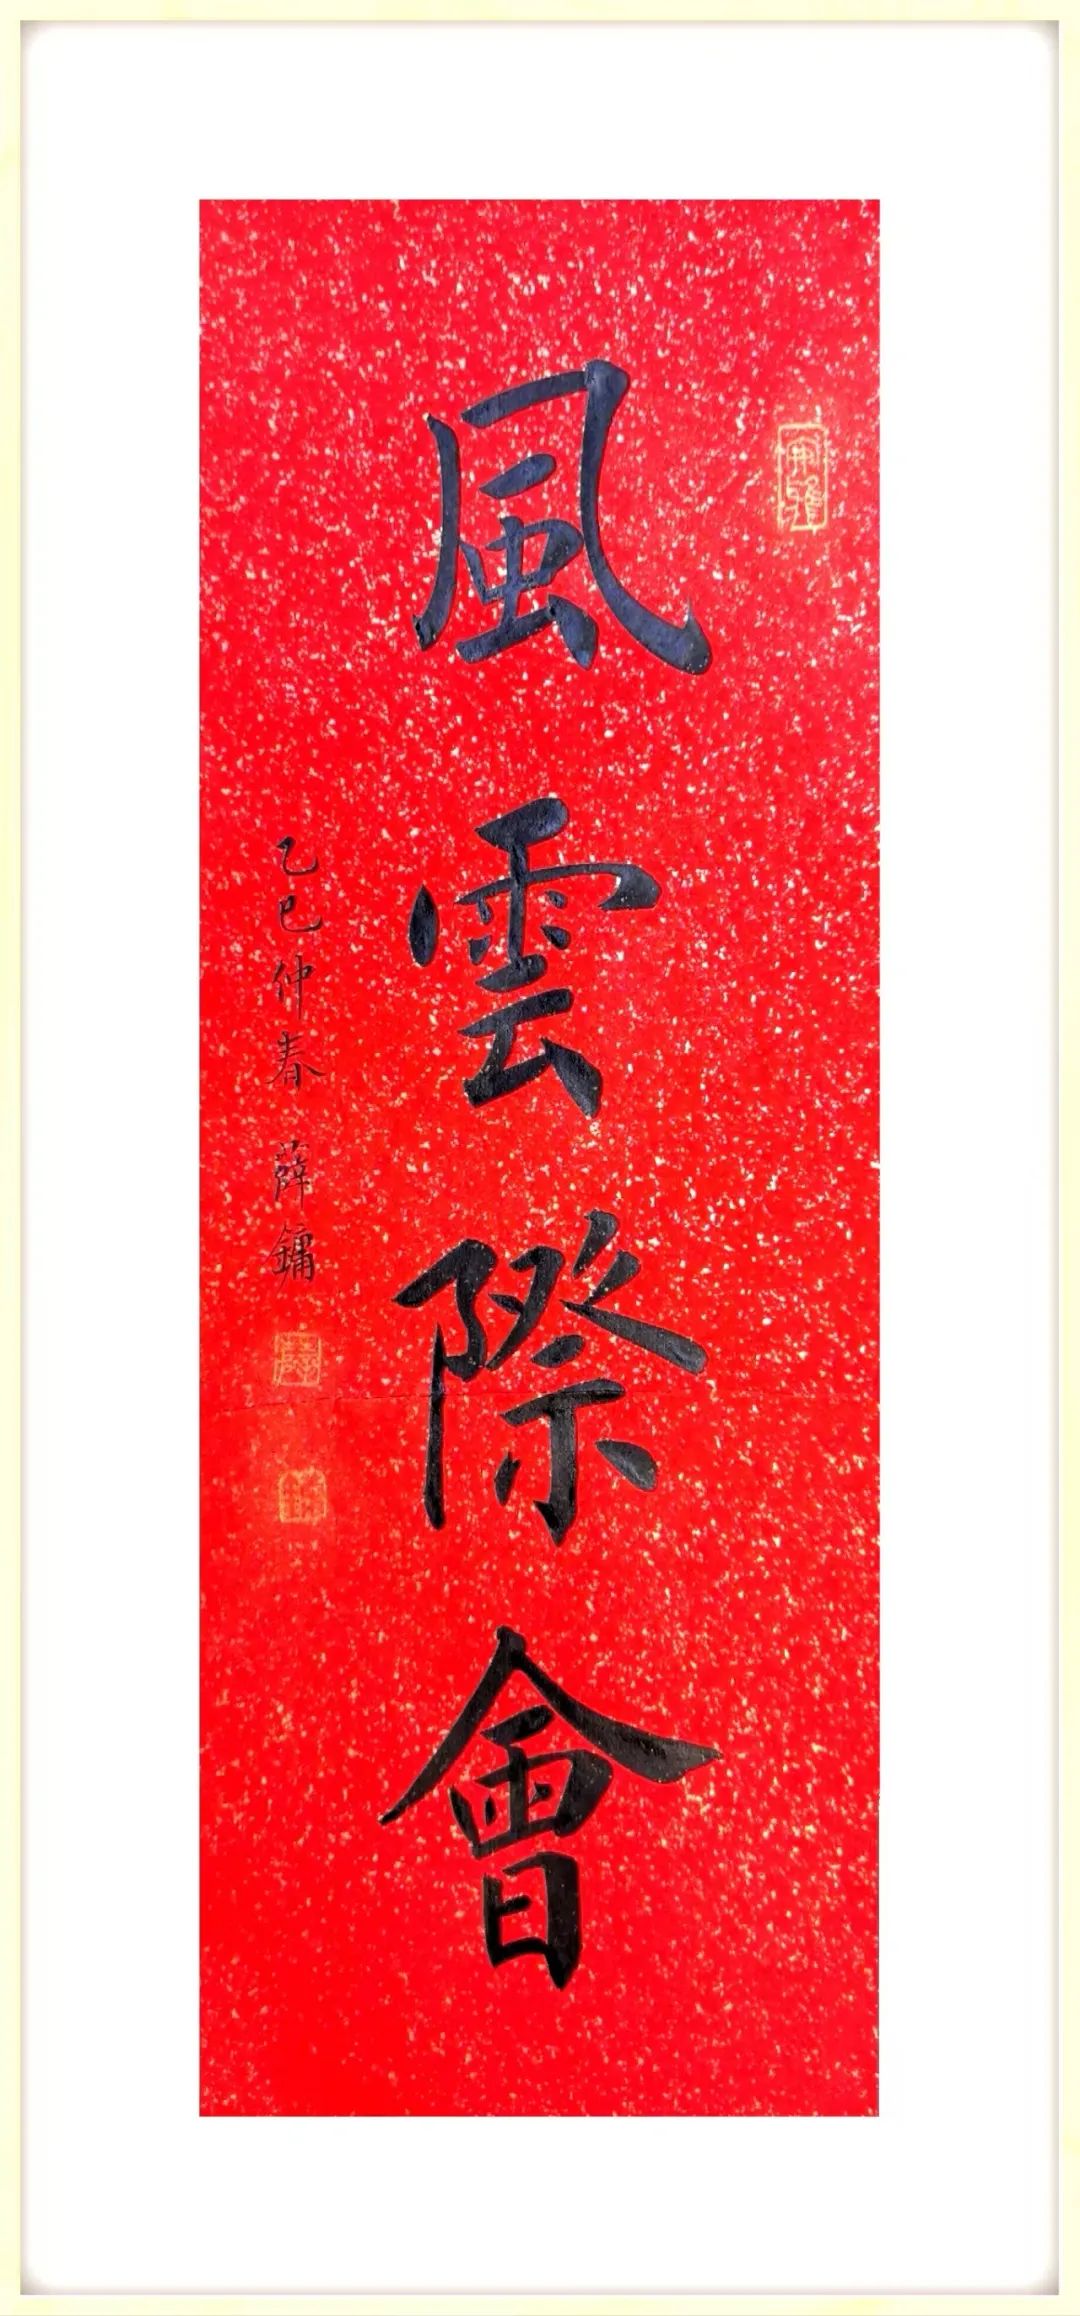 風雲際會
乙巳仲春 薛鏞